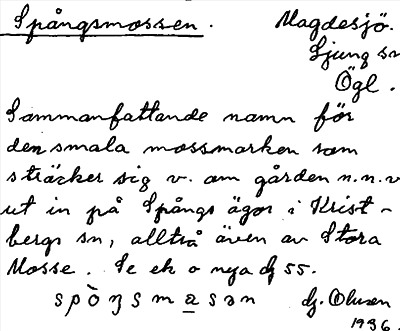 Spångsmossen. Magdesjö.
Ljung sn
Ögl.
Sammanfattande namn för
den smala mossmarken som
sträcker sig v. om gården n.n.v
ut in på Spångs ägor i Krist-
bergs sn, alltså även av Stora
Mosse. Se ek o nya 55.
1936.